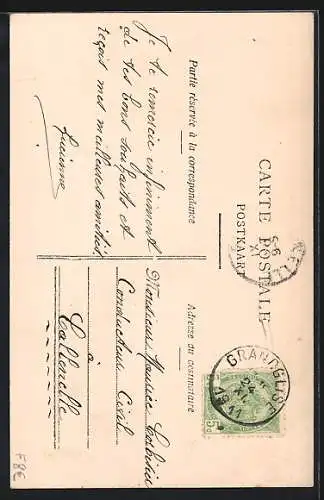 CARTE POSTALE
POSTKAART
Partie réservée à la correspondance
Adresse du destinataire
Je te remercie infiniment
de tes bons souhaits et
reçois mes meilleures amitiés
Lucienne
Monsieur Maurice
Conducteur Civil
à
GRANDGLISE
24
1911
5
F8€